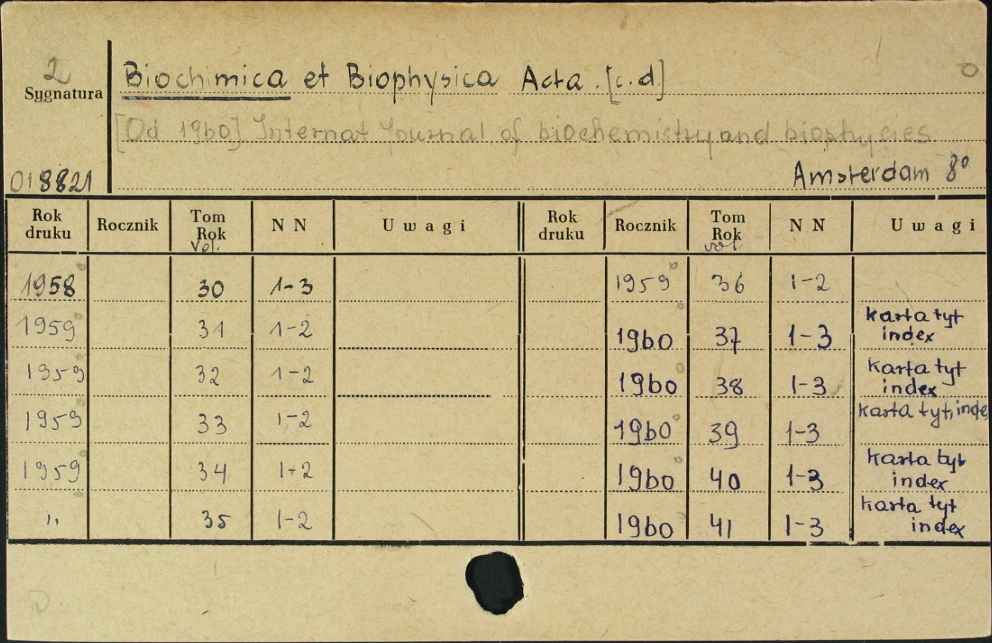 2
Sygnatura
Biochimica et Biophysica Acta. [c.d]
[Od 1960] Internat Journal of biochemistry and biophysics
018821
Amsterdam 8°
Rok druku Rocznik Tom Rok vol. N N Uwagi Rok druku Rocznik Tom Rok vol. N N Uwagi
1958 30 1-3 1959 36 1-2
1959 31 1-2 1960 37 1-3 karta tyt index
1959 32 1-2 1960 38 1-3 karta tyt index
1959 33 1-2 1960 39 1-3 karta tyt, inde
1959 34 1-2 1960 40 1-3 karta tyt index
" 35 1-2 1960 41 1-3 karta tyt index